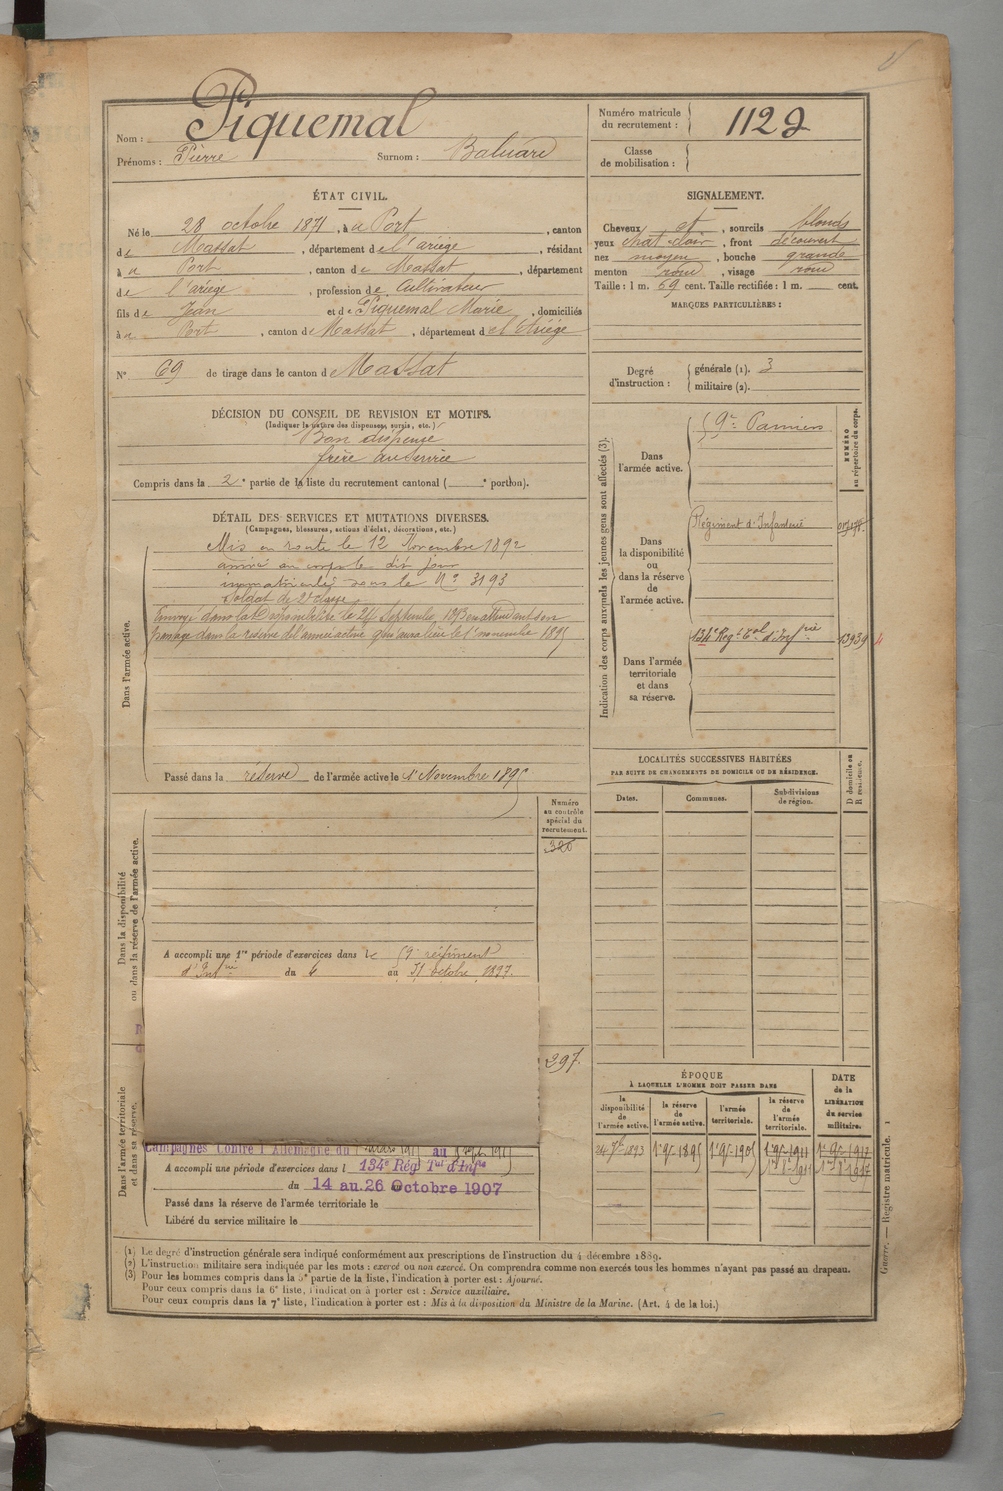 Nom : Piquemal
Prénoms : Pierre Surnom : Baluard
Numéro matricule du recrutement : 1122
Classe de mobilisation :
ÉTAT CIVIL.
Né le 28 octobre 1871, à a Port, canton
de Massat, département de l'ariège, résidant
à a Port, canton de Massat, département
de l'ariège, profession de Cultivateur
fils de Jean et de Piquemal Marie, domiciliés
à a Port, canton de Massat, département de l'Ariège
N° 69 de tirage dans le canton de Massat
SIGNALEMENT.
Cheveux et, sourcils blonds
yeux chat. clair, front découvert
nez moyen, bouche grande
menton rond, visage rond
Taille : 1 m. 69 cent. Taille rectifiée : 1 m. — cent.
MARQUES PARTICULIÈRES :
Degré d'instruction : générale (1). 3
militaire (2).
DÉCISION DU CONSEIL DE REVISION ET MOTIFS.
(Indiquer la nature des dispenses, sursis, etc.)
Bon dispensé
frère au service
Compris dans la 2e partie de la liste du recrutement cantonal ( e portion).
DÉTAIL DES SERVICES ET MUTATIONS DIVERSES.
(Campagnes, blessures, actions d'éclat, décorations, etc.)
Dans l'armée active.
Mis en route le 12 Novembre 1892
arrivé au corps le dit jour
immatriculé sous le N° 3193
soldat de 2e classe
Envoyé dans la Disponibilité le 24 Septembre 1893 en attendant son
passage dans la réserve de l'armée active qui aura lieu le 1er novembre 1895
Passé dans la réserve de l'armée active le 1er Novembre 1895
Indication des corps auxquels les jeunes gens sont affectés (3).
NUMÉRO au répertoire du corps.
Dans l'armée active.
59e Pamiers
Dans la disponibilité ou dans la réserve de l'armée active.
Régiment d'Infanterie
Dans l'armée territoriale et dans sa réserve.
134e Regt Tal d'Infrie 13939
LOCALITÉS SUCCESSIVES HABITÉES
PAR SUITE DE CHANGEMENTS DE DOMICILE OU DE RÉSIDENCE.
Dates. Communes. Subdivisions de région. D domicile ou R résidence.
Dans la disponibilité ou dans la réserve de l'armée active.
Numéro au contrôle spécial du recrutement.
326
A accompli une 1re période d'exercices dans le 59e régiment
d'Infrie du 4 au 31 octobre 1897.
297.
Dans l'armée territoriale et dans sa réserve.
Campagnes Contre l'Allemagne du au
A accompli une période d'exercices dans l 134e Rég Tal d'Infrie
du 14 au 26 Octobre 1907
Passé dans la réserve de l'armée territoriale le
Libéré du service militaire le
ÉPOQUE
À LAQUELLE L'HOMME DOIT PASSER DANS
la disponibilité de l'armée active. la réserve de l'armée active. l'armée territoriale. la réserve de l'armée territoriale. DATE de la LIBÉRATION du service militaire.
24 7bre 1893 1er 9bre 1895 1er 9bre 1905 1er 9bre 1911 1er 9bre 1917
1er 8bre 1911 1er 8bre 1917
(1) Le degré d'instruction générale sera indiqué conformément aux prescriptions de l'instruction du 4 décembre 1889.
(2) L'instruction militaire sera indiquée par les mots : exercé ou non exercé. On comprendra comme non exercés tous les hommes n'ayant pas passé au drapeau.
(3) Pour les hommes compris dans la 5e partie de la liste, l'indication à porter est : Ajourné.
Pour ceux compris dans la 6e liste, l'indication à porter est : Service auxiliaire.
Pour ceux compris dans la 7e liste, l'indication à porter est : Mis à la disposition du Ministre de la Marine. (Art. 4 de la loi.)
Guerre. — Registre matricule. 1